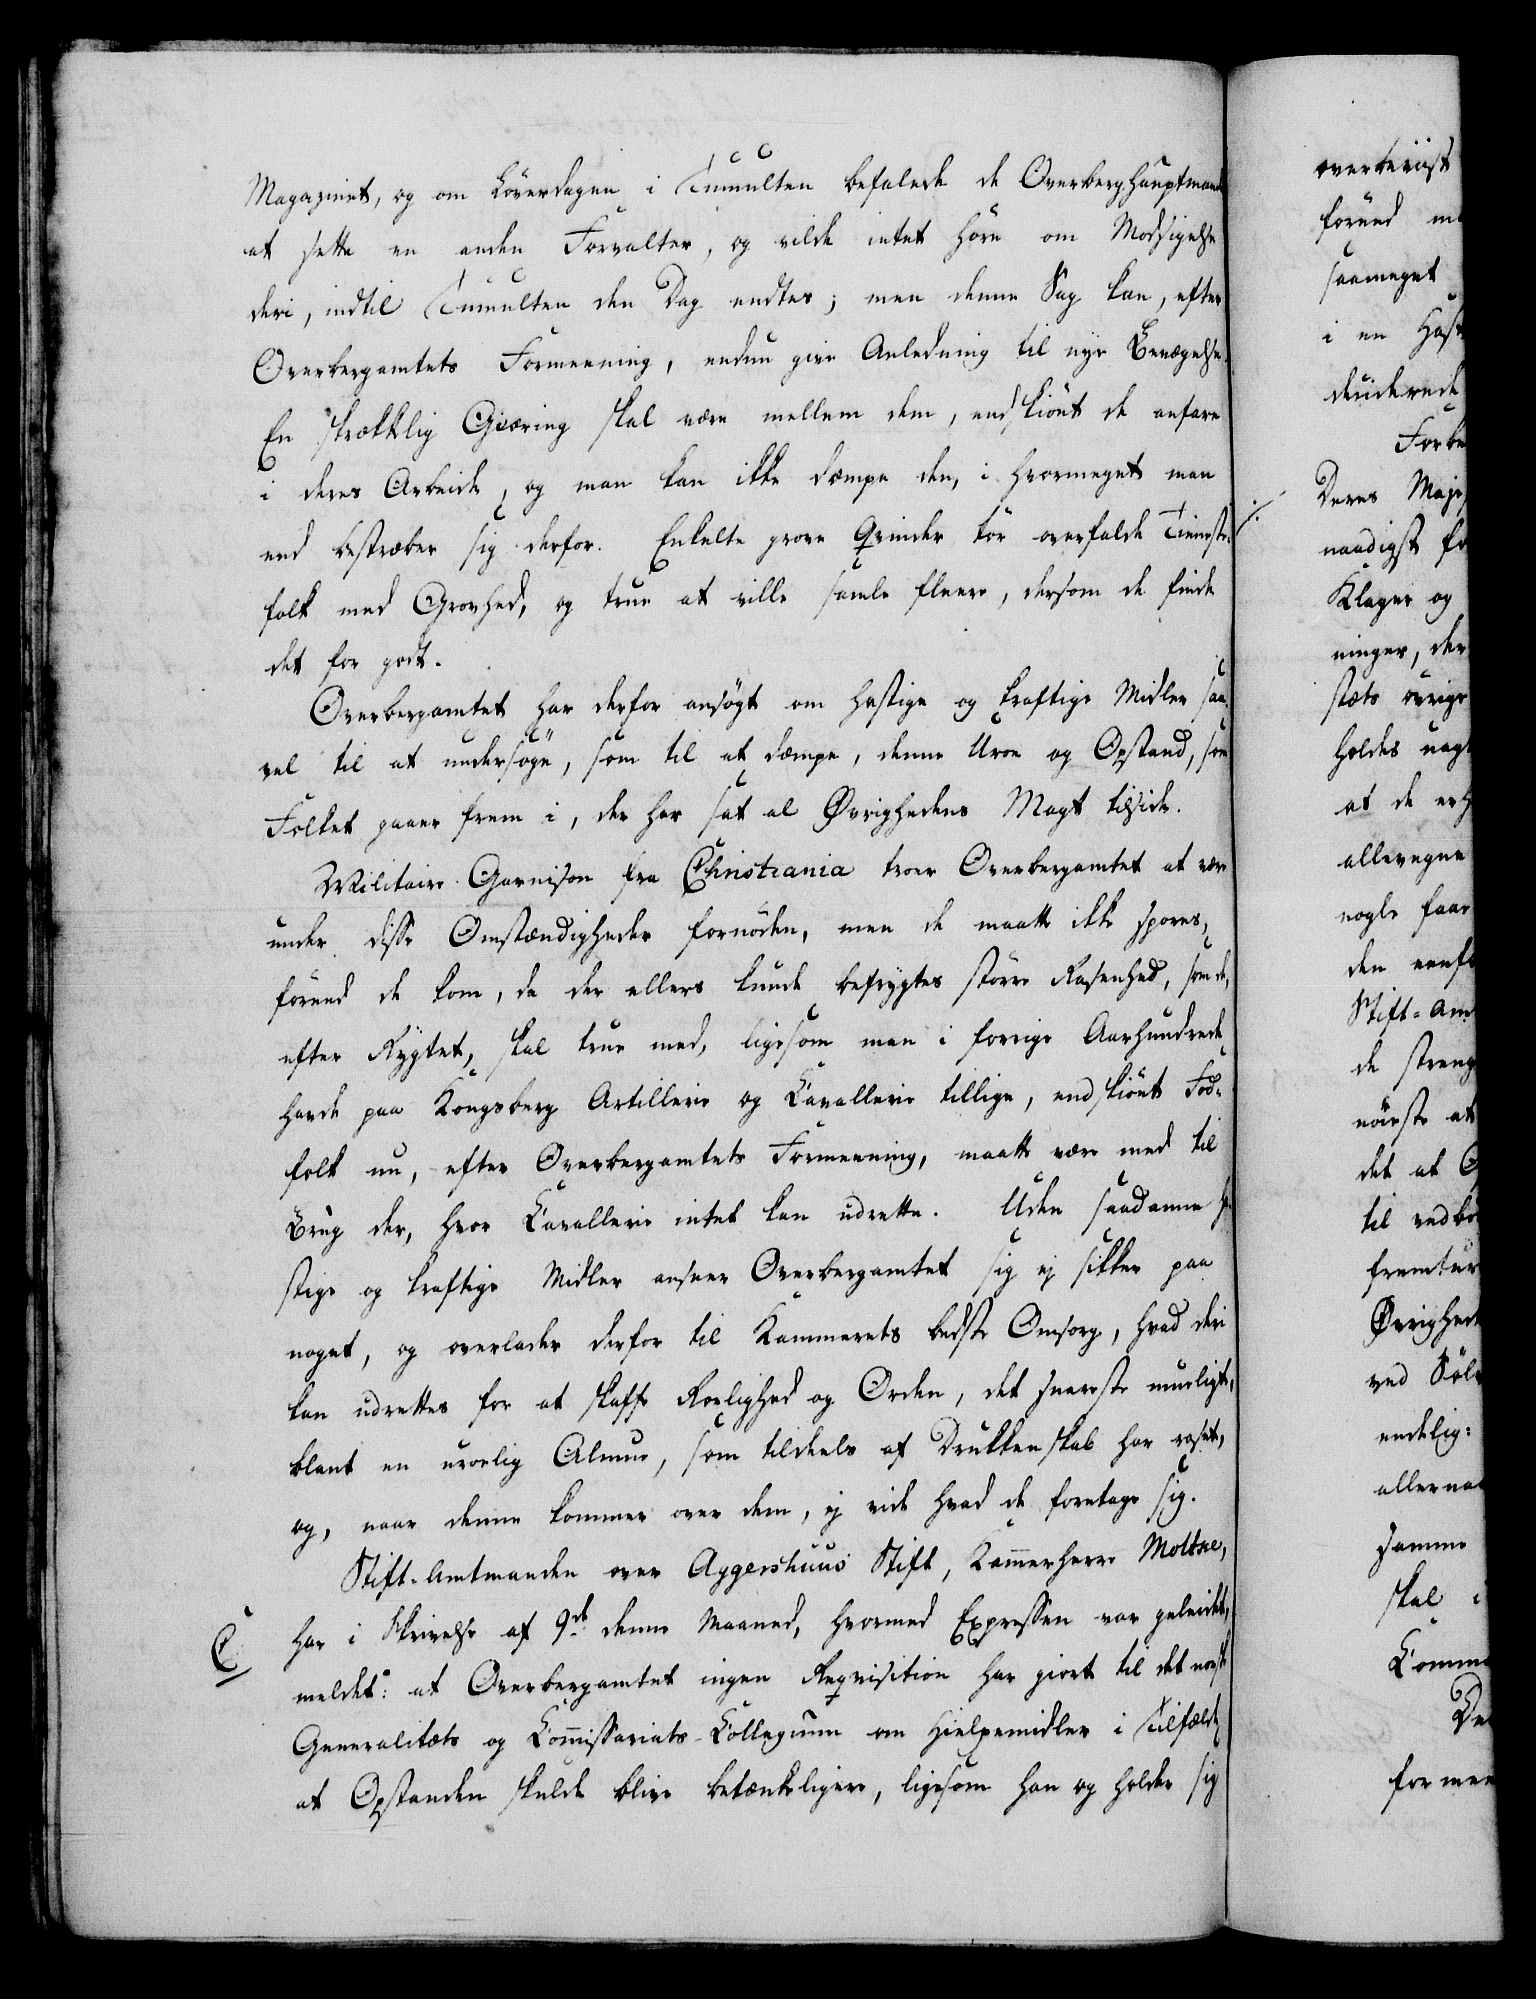 Magazinet, og om Löverdagen i Tumulten befalede de Overberghauptmand
at sette en anden Forvalter, og vilde intet høre om Modsigelse
deri, indtil Tumulten den Dag endtes; men denne Sag kan, efter
Overbergamtets Formeening, endnu give Anledning til nye Bevægelse.
En skrækkelig Giæring skal være mellem dem, endskiönt de anfare
i deres Arbeide, og man kan ikke dæmpe den, i hvormeget man
end bestræber sig derfor. Enkelte grove Qvinder tör overfalde Tieneste-
folk med Grovhed, og true at ville samle fleere, dersom de finde
det for godt.
Overbergamtet har derfor ansögt om hastige og kraftige Midler saa-
vel til at undersöge, som til at dæmpe, denne Uroe og Opstand, som
Folket gaaer frem i, der har sat al Øvrighedens Magt tilside.
Militair Garnison fra Christiania troer Overbergamtet at være
under disse Omstændigheder fornöden, men de maatte ikke spores,
förend de kom, da der ellers kunde befrygtes större Rasenhed, som de,
efter Rygtet, skal true med, ligesom man i forrige Aarhundrede
havde paa Kongsberg Artillerie og Cavallerie tillige, endskiönt Fod-
folk nu, efter Overbergamtets Formeening, maatte være med til
Brug der, hvor Cavallerie intet kan udrette. Uden saadanne ha-
stige og kraftige Midler anseer Overbergamtet sig ej sikker paa
noget, og overlader derfor til Kammerets bedste Omsorg, hvad deri
kan udrettes for at skaffe Roelighed og Orden, det snareste mueligt,
blant en uroelig Almue, som tildeels af Drukkenskab har raset,
og, naar denne kommer over dem, ej vide hvad de foretage sig.
Stift-Amtmanden over Aggershuus Stift, Kammerherre Moltke,
C. har i Skrivelse af 9de denne Maaned, hvormed Expressen var geleidet,
meldet: at Overbergamtet ingen Reqvisition har giort til det norske
Generalitæts og Commissariats-Collegium om Hielpemidler i Tilfælde
at Opstanden skulde blive betænkeligere, ligesom han og holder sig
overbeviist
förend
saameget
i en
deciderede
Deres
naadigst
Klager og
ninger, der
stæts övrige
holdes
at de
allevegne
nogle faae
den
Stift-Am
de streng
nöieste at
det at
til vedbö
fremtur
Øvrighed
ved Söl
endelig:
allernaa
samme
skal
Comm
De
formee